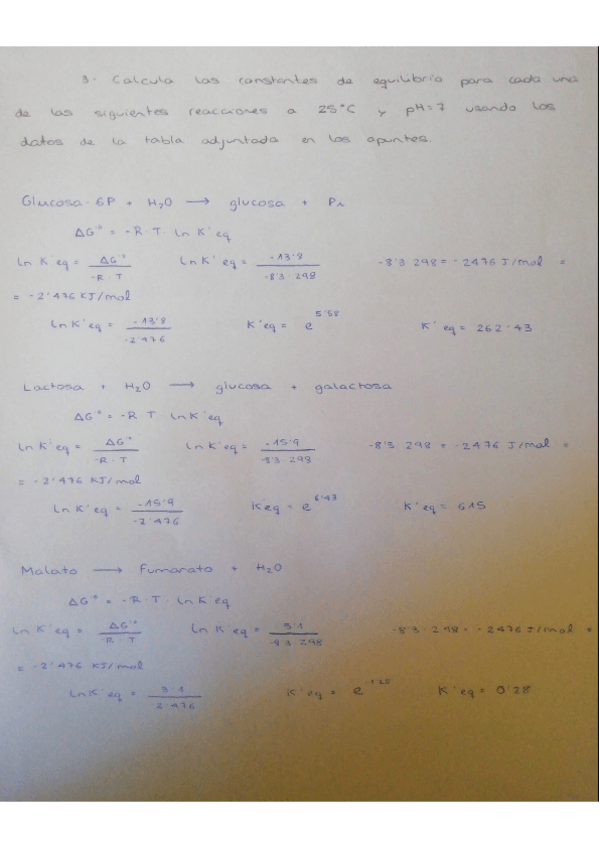 3.- Calcula las constantes de equilibrio para cada una
de las siguientes reacciones a 25°C y pH=7 usando los
datos de la tabla adjuntada en los apuntes.
Glucosa-6P + H₂O → glucosa + Pi
ΔG'° = -R·T·ln K'eq
ln K'eq = ΔG'° / -R·T    ln K'eq = -13'8 / -8'3·298    -8'3·298 = -2476 J/mol =
= -2'476 KJ/mol
ln K'eq = -13'8 / -2'476    K'eq = e^5'58    K'eq = 262'43
Lactosa + H₂O → glucosa + galactosa
ΔG'° = -R·T·ln K'eq
ln K'eq = ΔG'° / -R·T    ln K'eq = -15'9 / -8'3·298    -8'3·298 = -2476 J/mol =
= -2'476 KJ/mol
ln K'eq = -15'9 / -2'476    Keq = e^6'43    K'eq = 615
Malato → Fumarato + H₂O
ΔG'° = -R·T·ln K'eq
ln K'eq = ΔG'° / R·T    ln K'eq = 3'1 / -8'3·298    -8'3·298 = -2476 J/mol =
= -2'476 KJ/mol
ln K'eq = 3'1 / 2'476    K'eq = e^-1'25    K'eq = 0'28